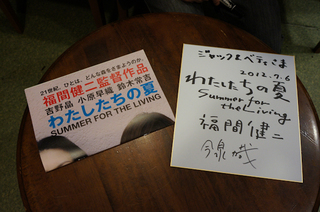 21世紀、ひとは、どんな森をさまようのか。
福間健二監督作品
吉野晶 小原早織 鈴木常吉
わたしたちの夏
SUMMER FOR THE LIVING
ジャック&ベティさま
2012.7.6
わたしたちの夏
Summer for
the Living
福間健二